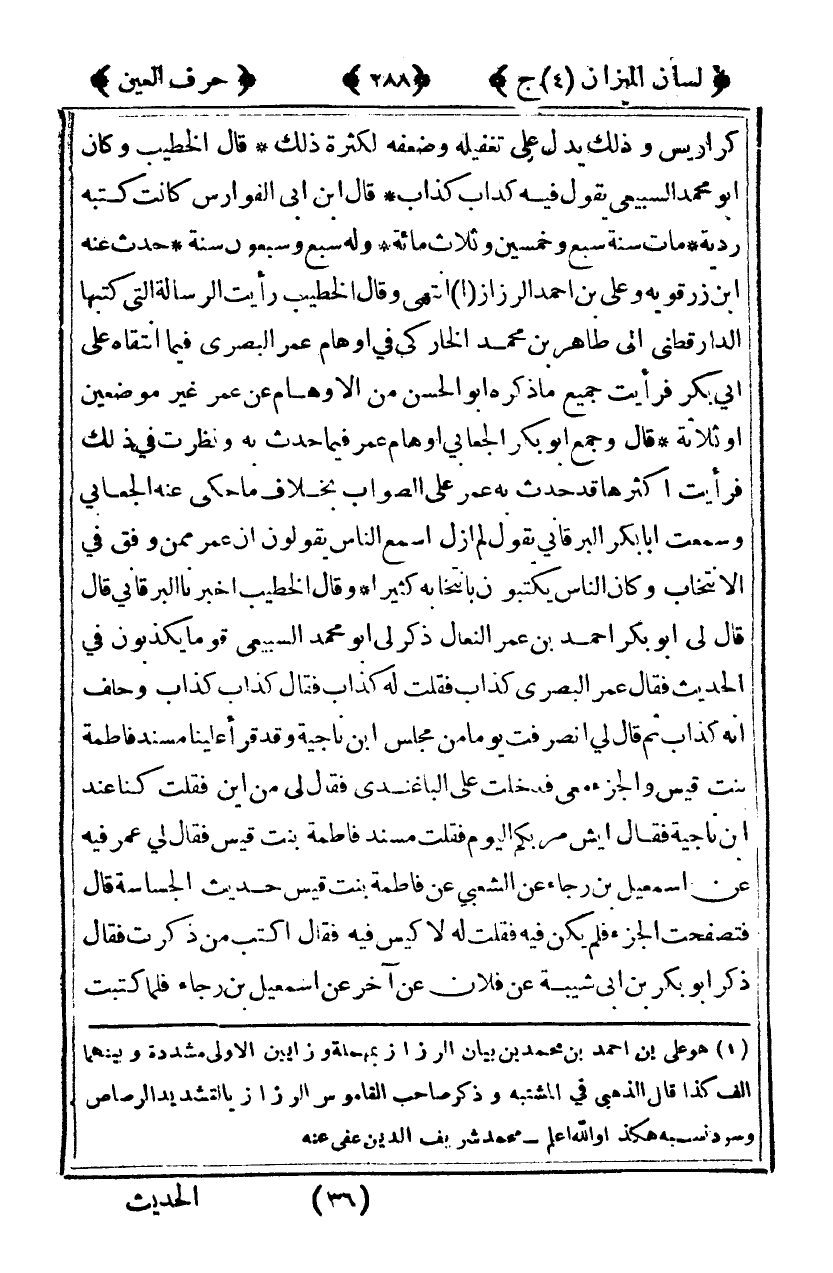 ﴿ لسان الميزان (٤) ج ﴾ ﴿ ٢٨٨ ﴾ ﴿ حرف العين ﴾
كراريس و ذلك يدل على تغفيله وضعفه لكثرة ذلك * قال الخطيب وكان
ابو محمد السبيعى يقول فيه كذاب كذاب* قال ابن ابى الفوارس كانت كتبه
ردية*مات سنة سبع و خمسين و ثلاث مائة* وله سبع وسبعون سنة *حدث عنه
ابن زرقويه وعلى بن احمد الرزاز(١) انتهى وقال الخطيب رأيت الرسالة التى كتبها
الدارقطنى الى طاهر بن محمد الخاركي في اوهام عمر البصرى فيما انتقاه على
ابي بكر فرأيت جميع ماذكره ابو الحسن من الاوهام عن عمر غير موضعين
او ثلاثة *قال وجمع ابو بكر الجعابي اوهام عمر فيما حدث به ونظرت في ذلك
فرأيت اكثرها قد حدث به عمر على الصواب بخلاف ماحكى عنه الجعابي
وسمعت ابا بكر البرقاني يقول لم ازل اسمع الناس يقولون ان عمر ممن وفق في
الانتخاب وكان الناس يكتبون بانتخابه كثيرا* وقال الخطيب اخبرنا البرقاني قال
قال لى ابو بكر احمد بن عمر النعال ذكر لى ابو محمد السبيعى قوما يكذبون في
الحديث فقال عمر البصرى كذاب فقلت له كذاب فقال كذاب كذاب وحلف
انه كذاب ثم قال لي انصرفت يوما من مجلس ابن ناجية وقد قرأ علينا مسند فاطمة
بنت قيس والجزء معى فدخلت على الباغندى فقال لى من اين فقلت كنا عند
ابن ناجية فقال ايش مر بكم اليوم فقلت مسند فاطمة بنت قيس فقال لي عمر فيه
عن اسمعيل بن رجاء عن الشعبي عن فاطمة بنت قيس حديث الجساسة قال
فتصفحت الجزء فلم يكن فيه فقلت له لا كيس فيه فقال اكتب من ذكرت فقال
ذكر ابو بكر بن ابى شيبة عن فلان عن آخر عن اسمعيل بن رجاء فلما كتبت
(١) هو على بن احمد بن محمد بن بيان الرزاز بمهملة و زايين الاولى مشددة و بينهما
الف كذا قال الذهبي في المشتبه و ذكر صاحب القاموس الرزاز بالتشديد الرصاص
وسرد نسبه هكذا والله اعلم ــ محمد شريف الدين عفى عنه
(٣٦) الحديث